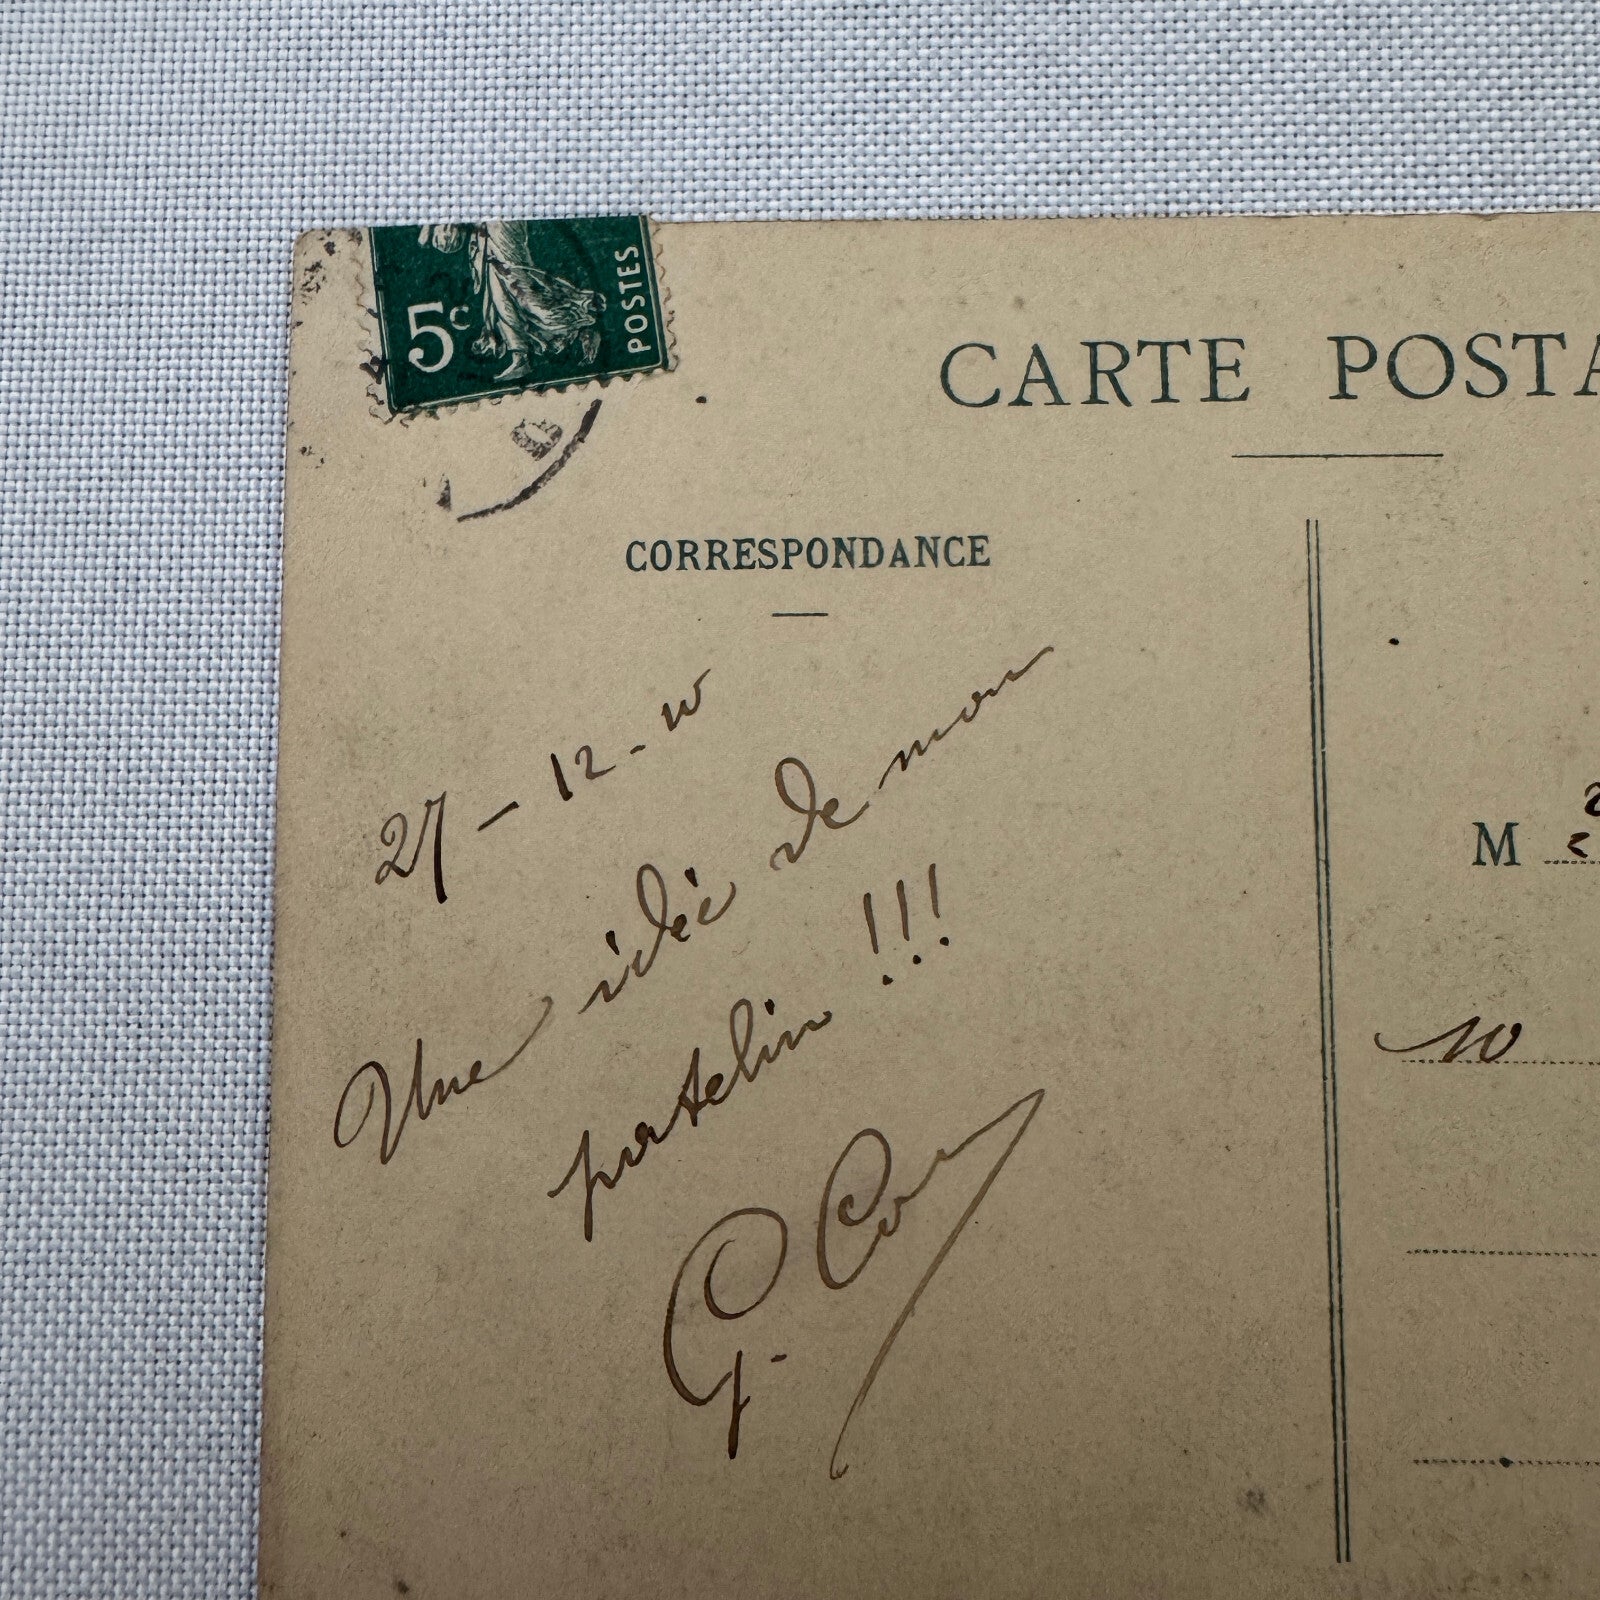 5c POSTES
CARTE POSTA
CORRESPONDANCE
27 - 12 - 10
Une idée de mon
patelin !!!
M
10